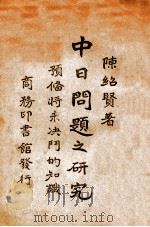 陳紹賢著
中日問題之研究
預備將來決鬥的知識
商務印書館發行
http://mouture.com